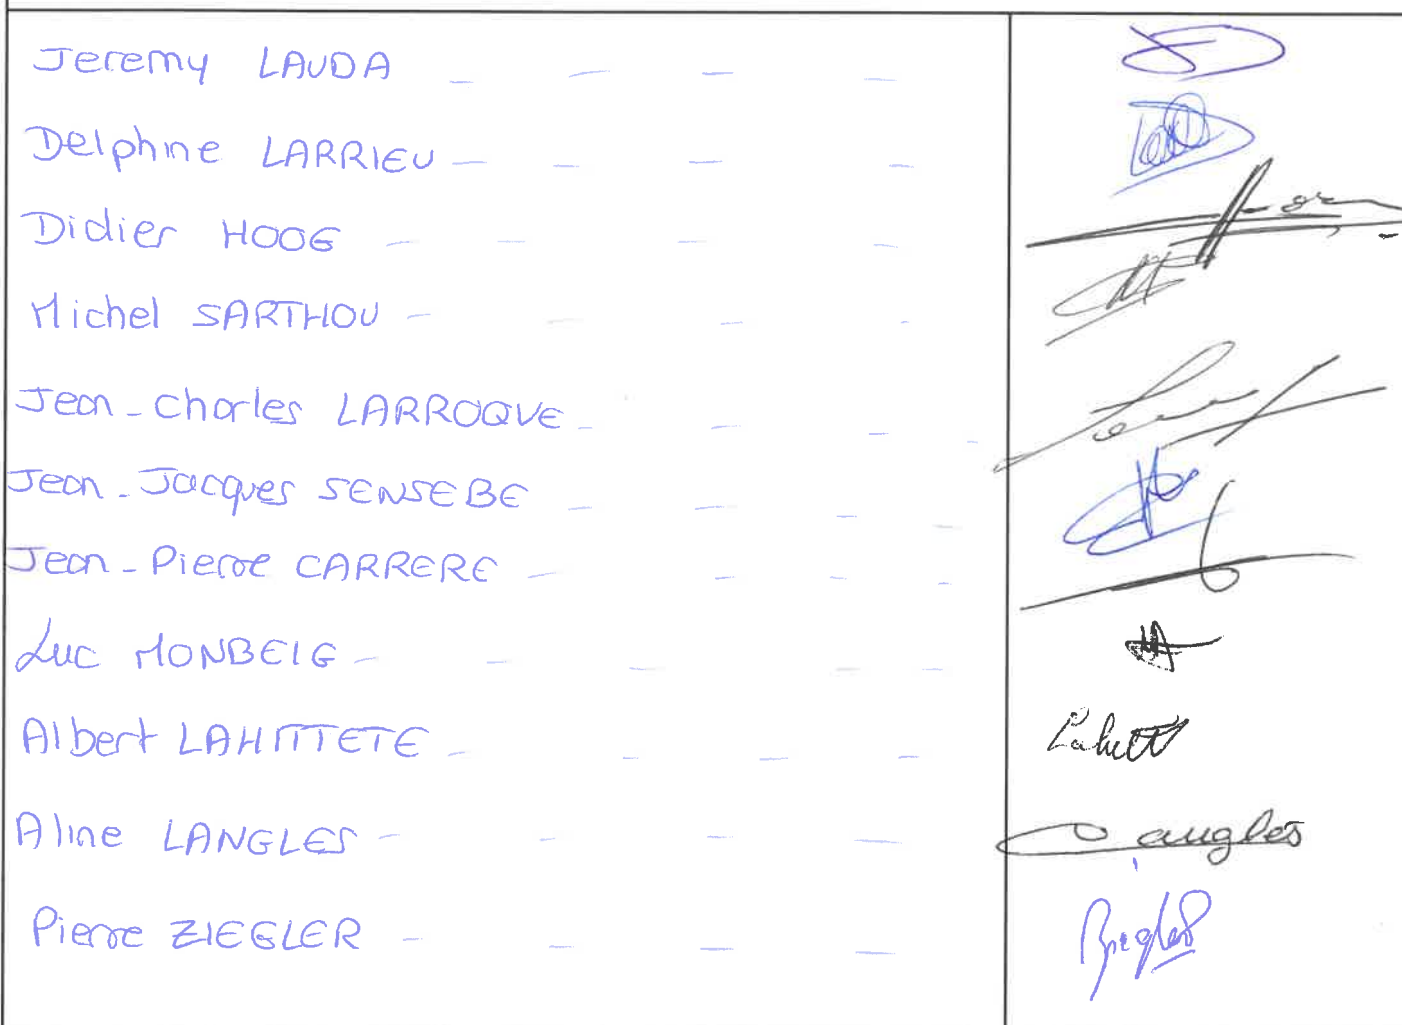 Jeremy LAUDA
Delphine LARRIEU
Didier HOOG
Michel SARTHOU
Jean-Charles LARROQUE
Jean-Jacques SENSEBE
Jean-Pierre CARRERE
Luc MONBEIG
Albert LAHITTETE
Aline LANGLES
Pierre ZIEGLER